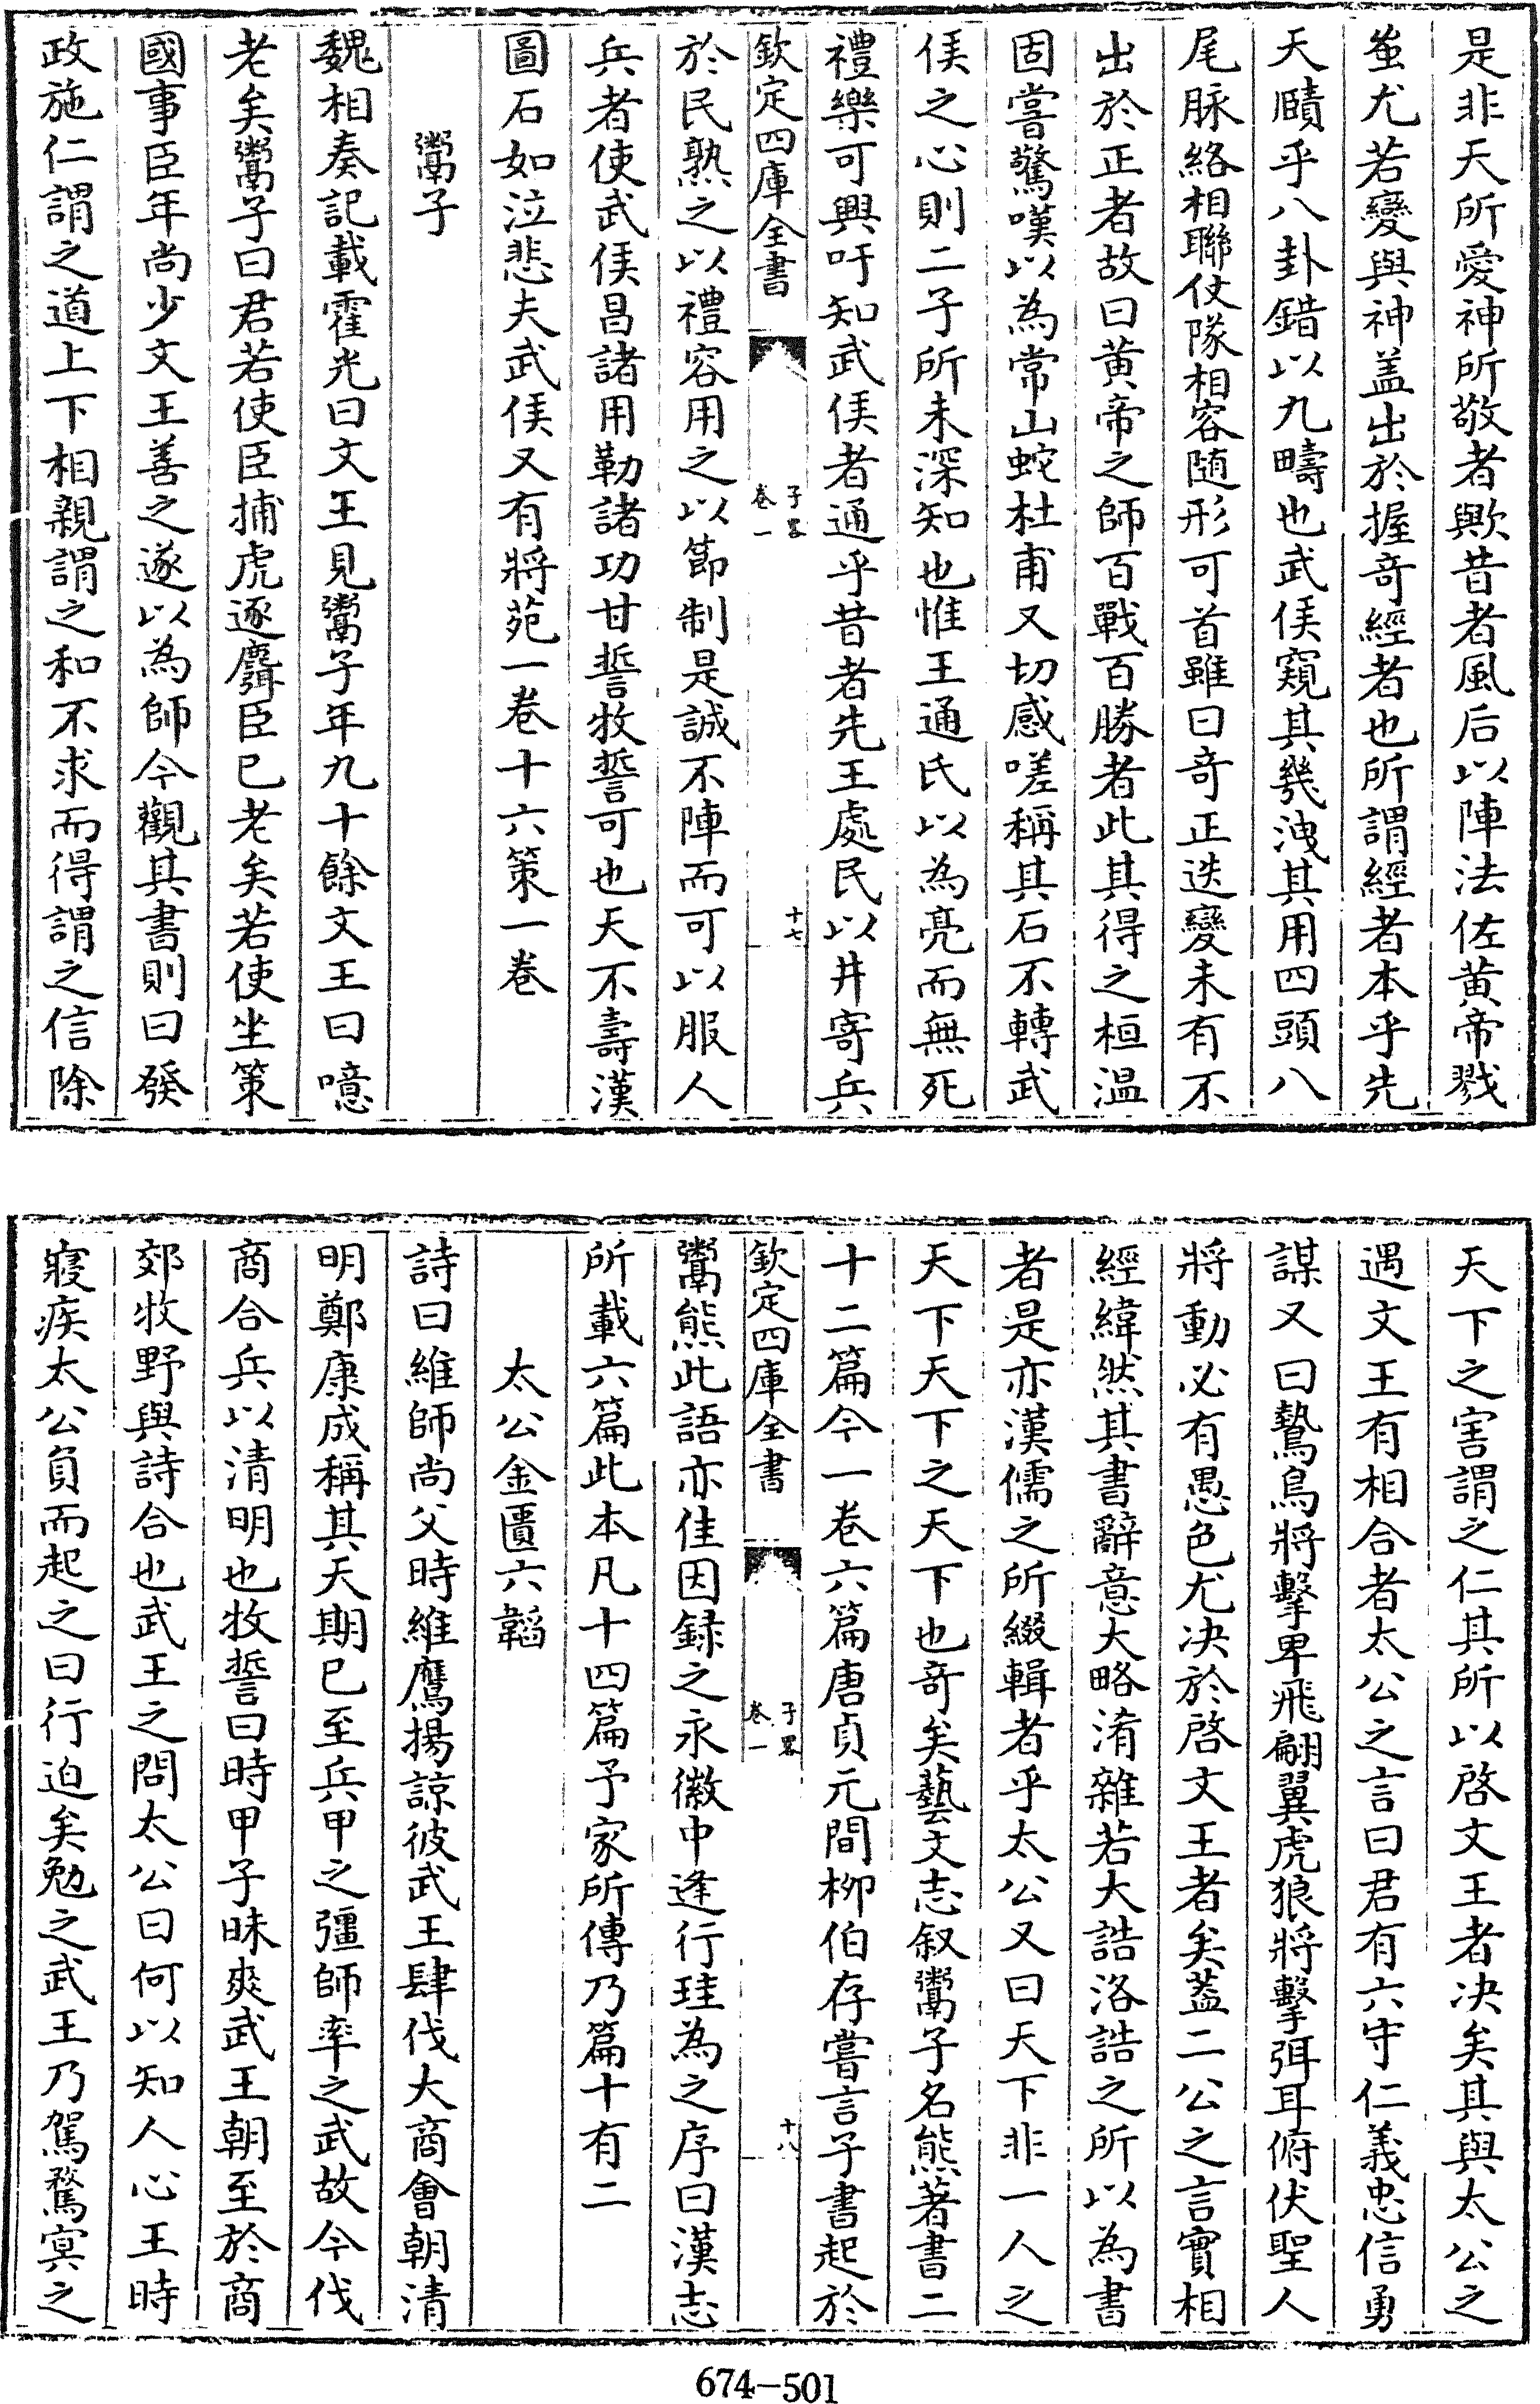 是非天所愛神所敬者歟昔者風后以陣法佐黄帝戮
蚩尤若變與神盖出於握竒經者也所謂經者本乎先
天賾乎八卦錯以九疇也武侯窺其幾洩其用四頭八
尾脉絡相聯仗隊相容随形可首雖曰竒正迭變未有不
出於正者故曰黄帝之師百戰百勝者此其得之桓温
固嘗驚嘆以為常山蛇杜甫又切感嗟稱其石不轉武
侯之心則二子所未深知也惟王通氏以為亮而無死
禮樂可興吁知武侯者通乎昔者先王處民以井寄兵
欽定四庫全書
子畧
卷一
十七
於民熟之以禮容用之以節制是誠不陣而可以服人
兵者使武侯昌諸用勒諸功甘誓牧誓可也天不壽漢
圖石如泣悲夫武侯又有將苑一卷十六策一卷
鬻子
魏相奏記載霍光曰文王見鬻子年九十餘文王曰噫
老矣鬻子曰君若使臣捕虎逐麛臣已老矣若使坐策
國事臣年尚少文王善之遂以為師今觀其書則曰發
政施仁謂之道上下相親謂之和不求而得謂之信除
天下之害謂之仁其所以啓文王者决矣其與太公之
遇文王有相合者太公之言曰君有六守仁義忠信勇
謀又曰鷙鳥將擊卑飛翩翼虎狼將擊弭耳俯伏聖人
將動必有愚色尤决於啓文王者矣葢二公之言實相
經緯然其書辭意大略淆雜若大誥洛誥之所以為書
者是亦漢儒之所綴輯者乎太公又曰天下非一人之
天下天下之天下也竒矣藝文志叙鬻子名熊著書二
十二篇今一卷六篇唐貞元間柳伯存嘗言子書起於
欽定四庫全書
子畧
卷一
十八
鬻熊此語亦佳因録之永徽中逢行珪為之序曰漢志
所載六篇此本凡十四篇予家所傳乃篇十有二
太公金匱六韜
詩曰維師尚父時維鷹揚諒彼武王肆伐大商會朝清
明鄭康成稱其天期已至兵甲之彊師率之武故今伐
商合兵以清明也牧誓曰時甲子昧爽武王朝至於商
郊牧野與詩合也武王之問太公曰何以知人心王時
寢疾太公負而起之曰行迫矣勉之武王乃駕騖冥之
674-501